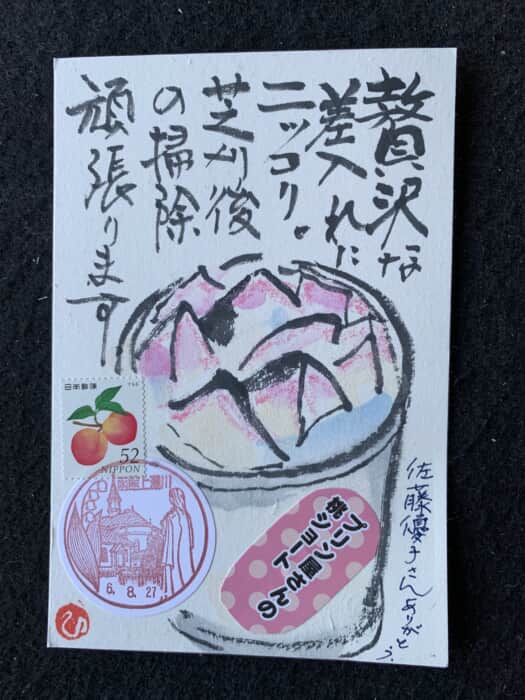 贅沢な
差入れに
ニッコリ。
芝刈後
の掃除
頑張ります
日本郵便
52
NIPPON
函館上湯川
6.8.27
プリン屋さんの
ショート
佐藤優子さんありがとう。
ひ